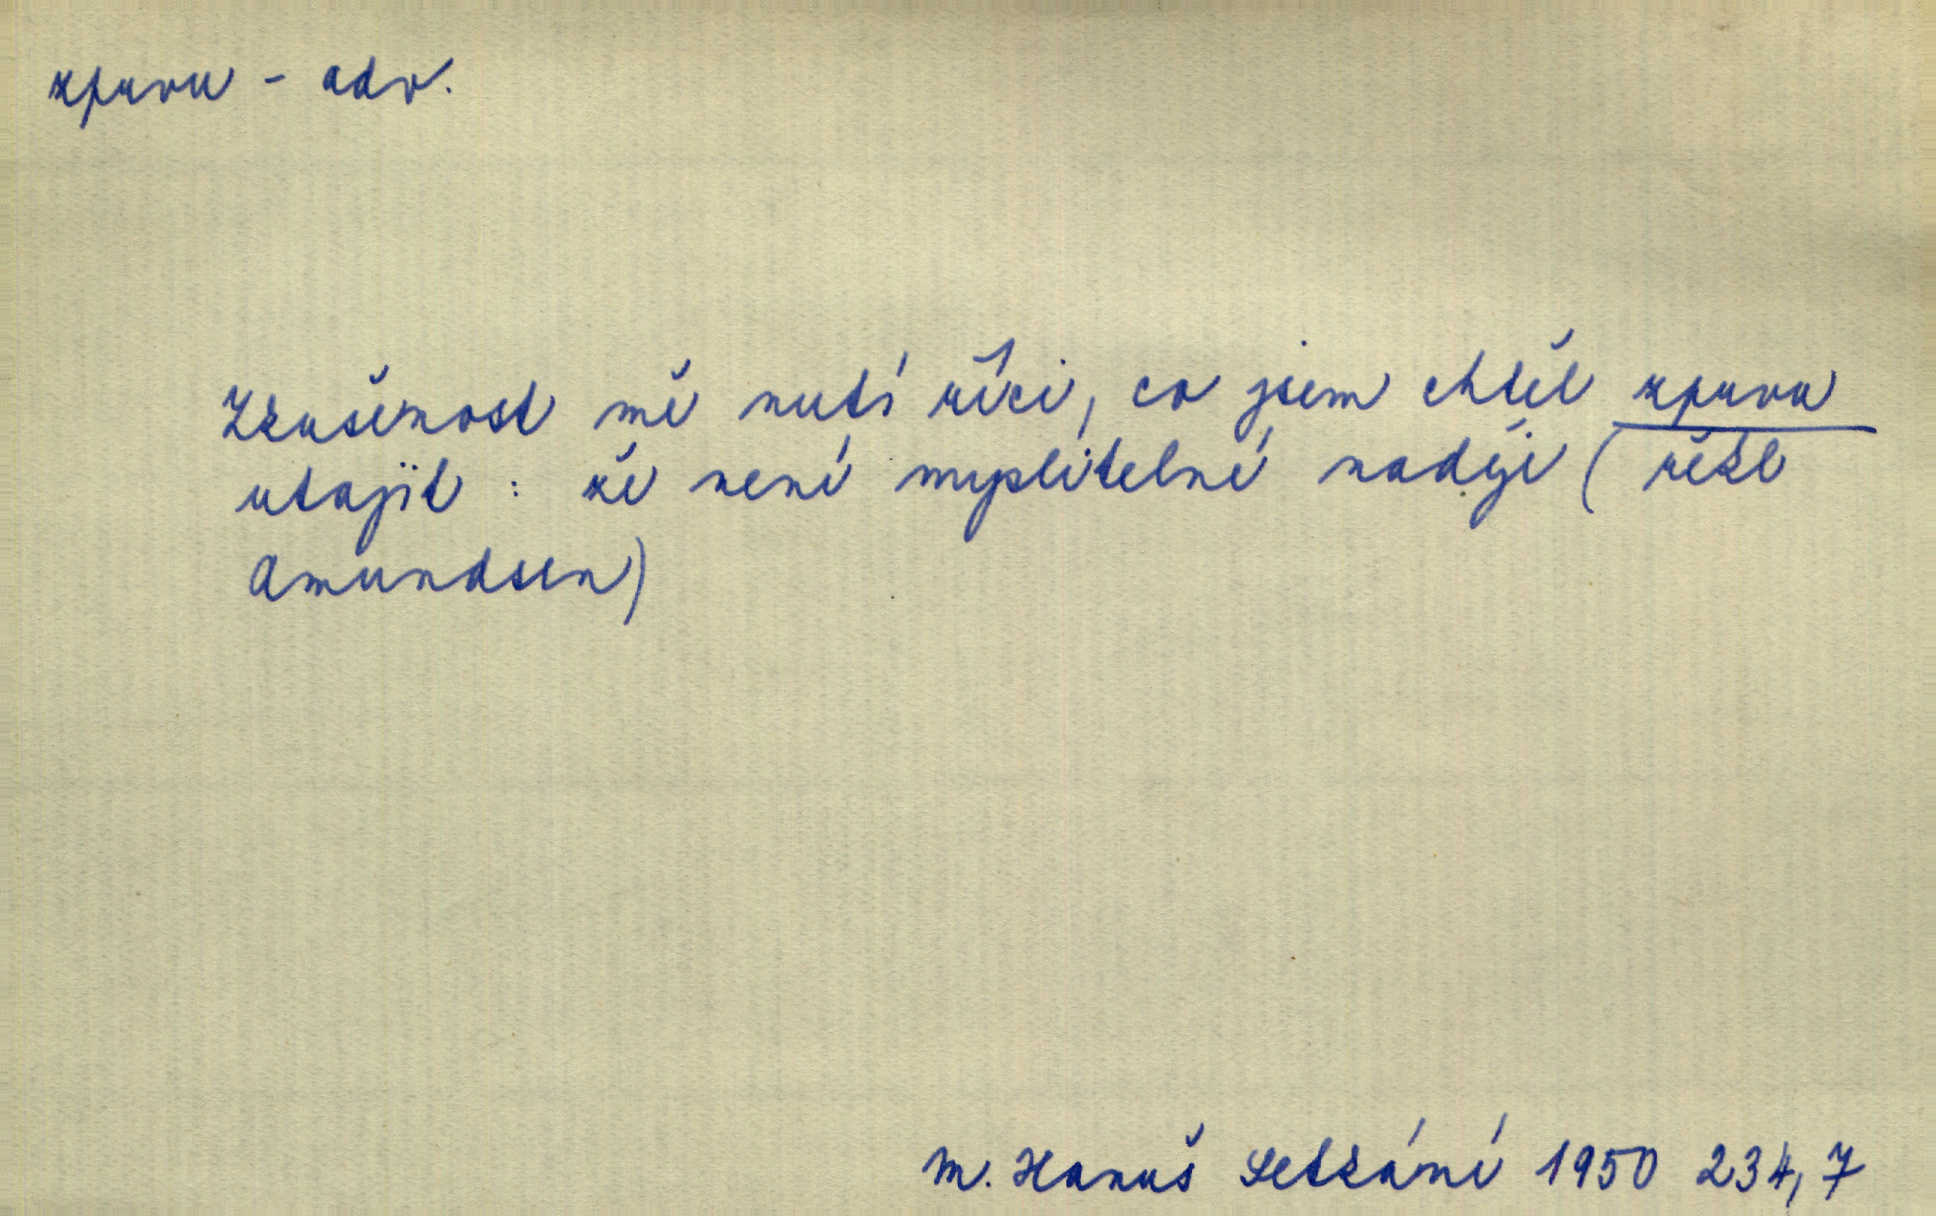 zprvu - adv.
Zkušenost mě nutí říci, co jsem chtěl zprvu
utajit : že není myslitelné naděje (řekl
Amundsen)
M. Hanuš Setkání 1950 234,7